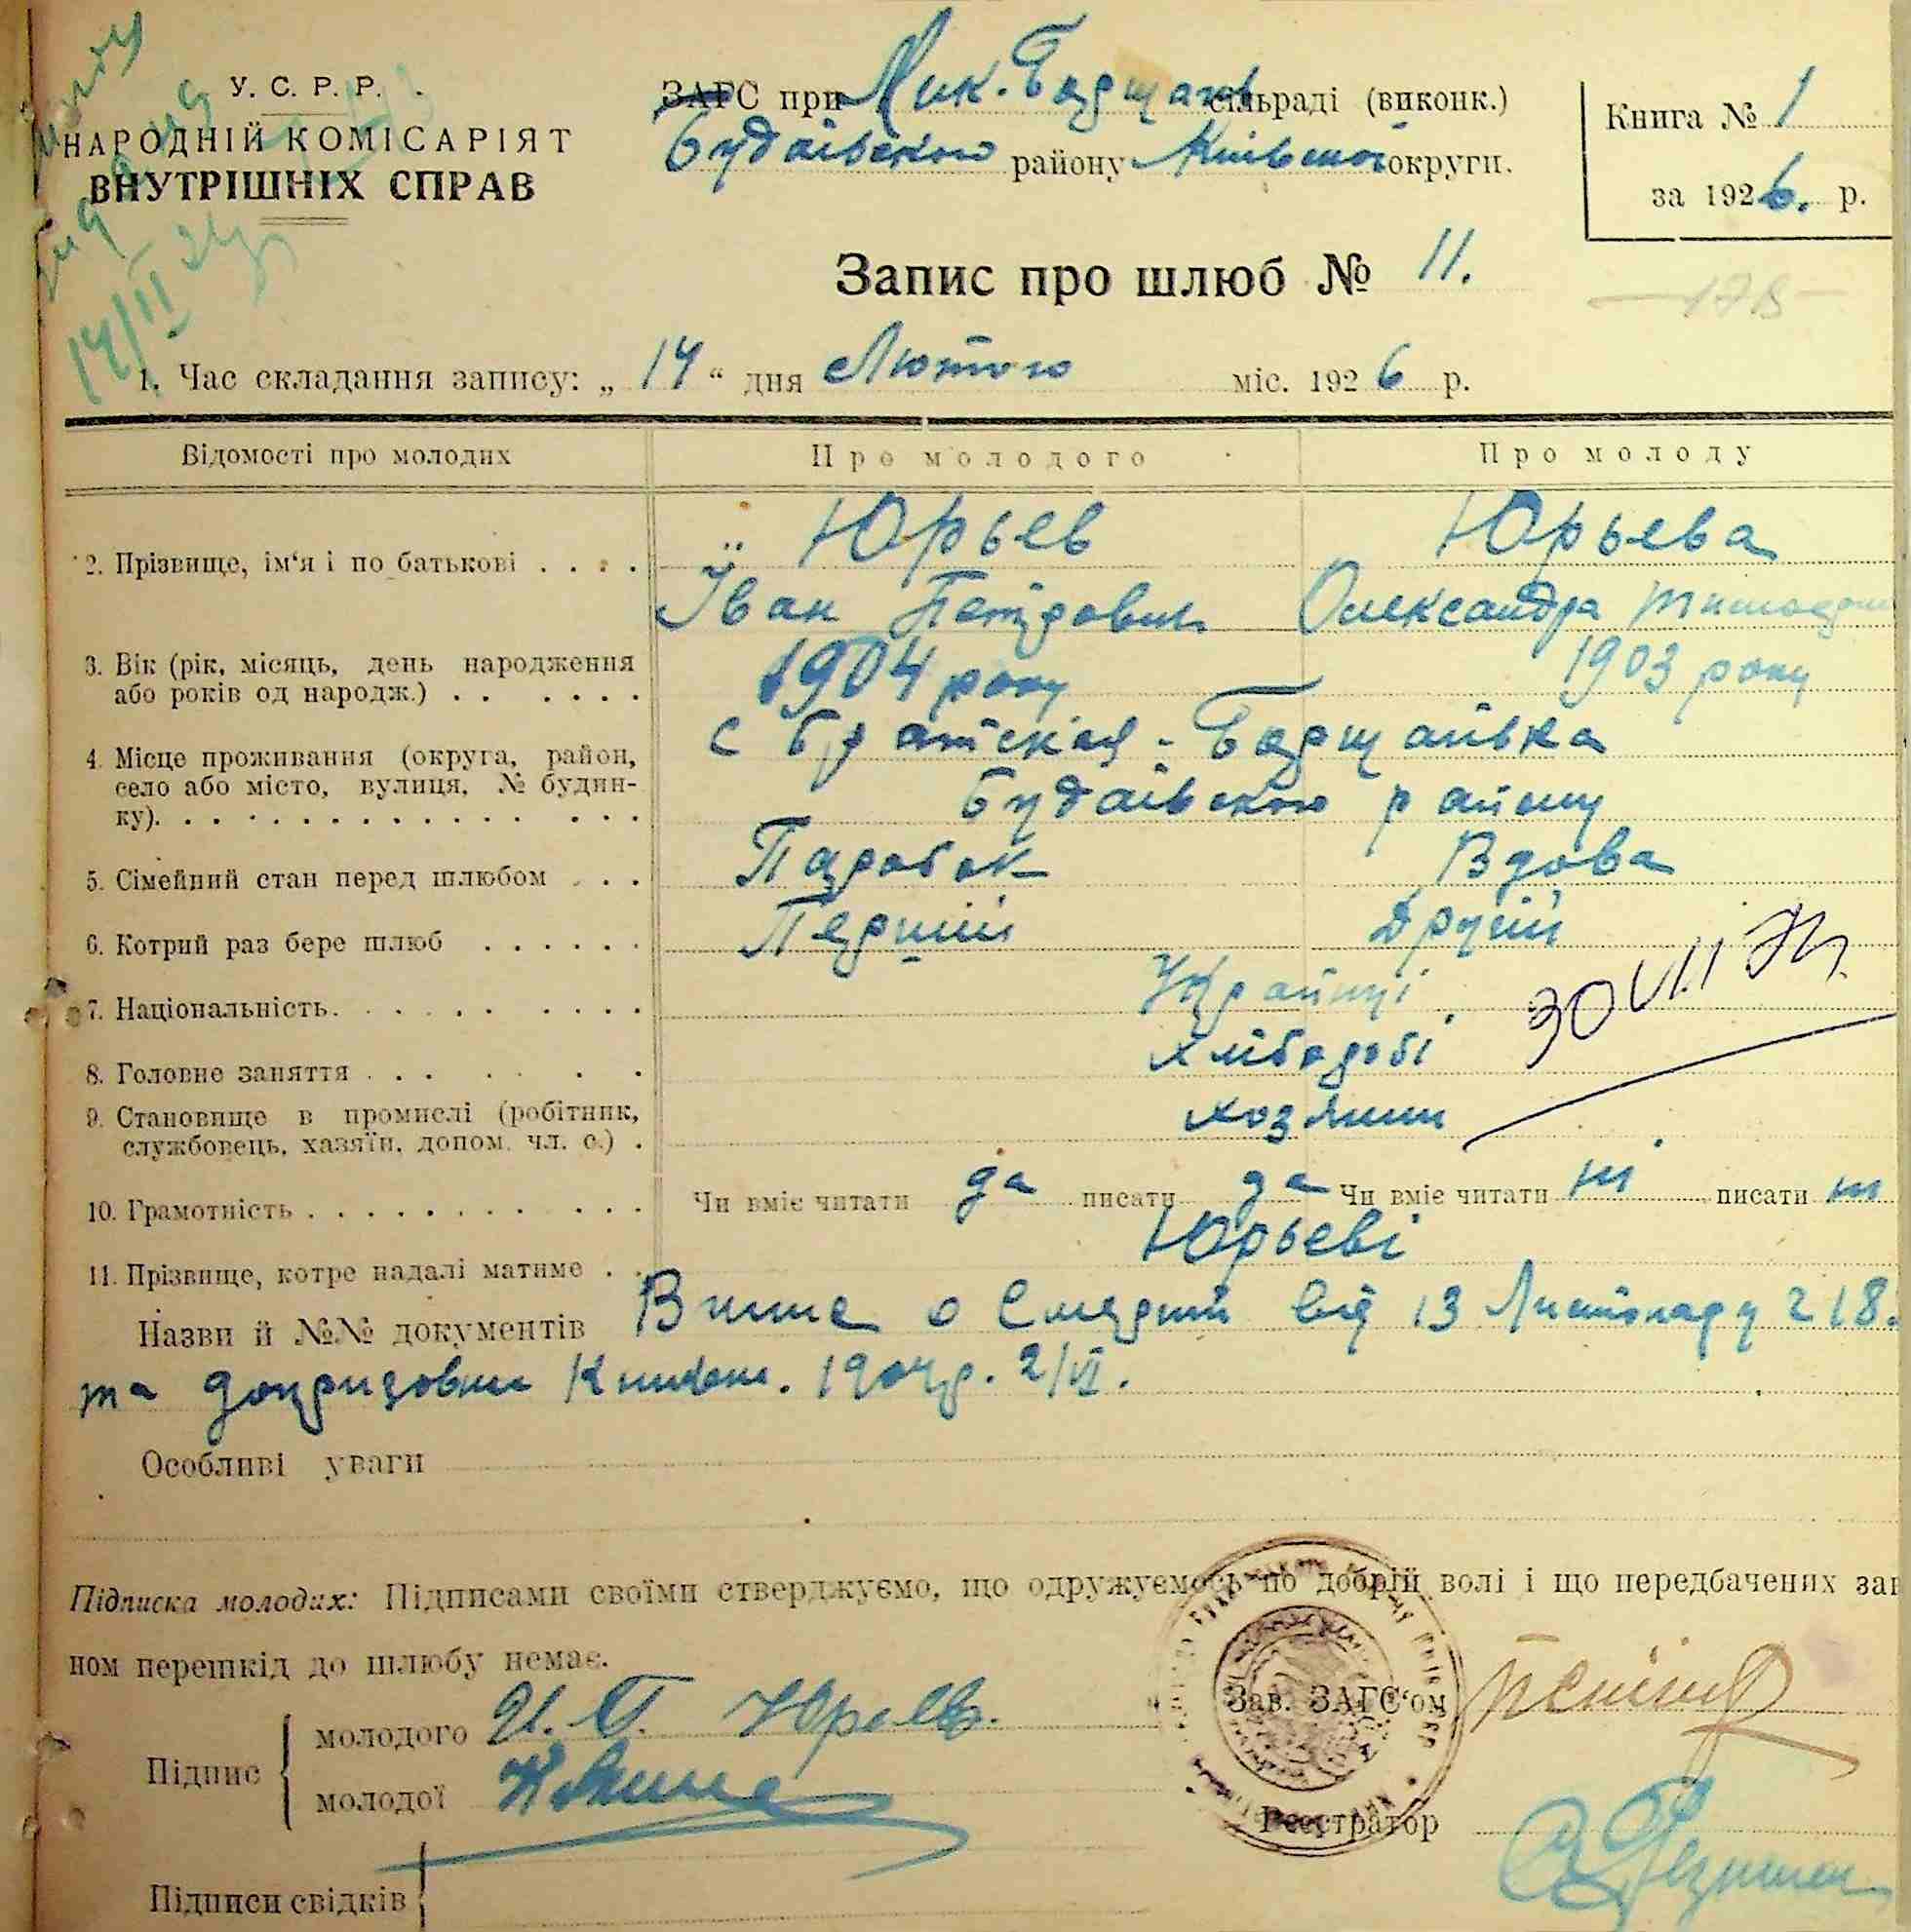 У. С. Р. Р.
НАРОДНІЙ КОМІСАРІЯТ
ВНУТРІШНІХ СПРАВ
14/II
ЗАГС при Мик. Борщагів сільраді (виконк.)
Будаївского району Київської округи.
Книга № 1
за 1926. р.
Запис про шлюб № 11.
1. Час складання запису: „ 14 “ дня Лютого міс. 1926 р.
Відомості про молодих Про молодого Про молоду
2. Прізвище, ім‘я і по батькові . . . . Юрьев Юрьева
Іван Петрович Олександра
3. Вік (рік, місяць, день народження
або років од народж.) . . . . . . 1904 року 1903 року
4. Місце проживання (округа, район,
село або місто, вулиця, № будин-
ку). . . . . . . . . . . . . . .
с Братская-Борщаївка
Будаівского району
5. Сімейний стан перед шлюбом . . . Паробок Вдова
6. Котрий раз бере шлюб . . . . . . Перший Другий
7. Національність. . . . . . . . . Українці
8. Головне заняття . . . . . . . Хлібороби
9. Становище в промислі (робітник,
службовець, хазяїн, допом. чл. с.) .
10. Грамотність . . . . . . . . . . . Чи вміє читати да писати да Чи вміє читати ні писати ні
11. Прізвище, котре надалі матиме . . Юрьеві
Назви й №№ документів о Смерти від 13 Листопаду 218.
та допризовна Книжк. 1904р. 2/VI.
Особливі уваги
Підписка молодих: Підписами своїми стверджуємо, що одружуємось по добрій волі і що передбачених зак
ном перешкід до шлюбу немає.
Підпис
молодого И. П. Юрьев.
молодої
Зав. ЗАГС‘ом
Реєстратор
Підписи свідків